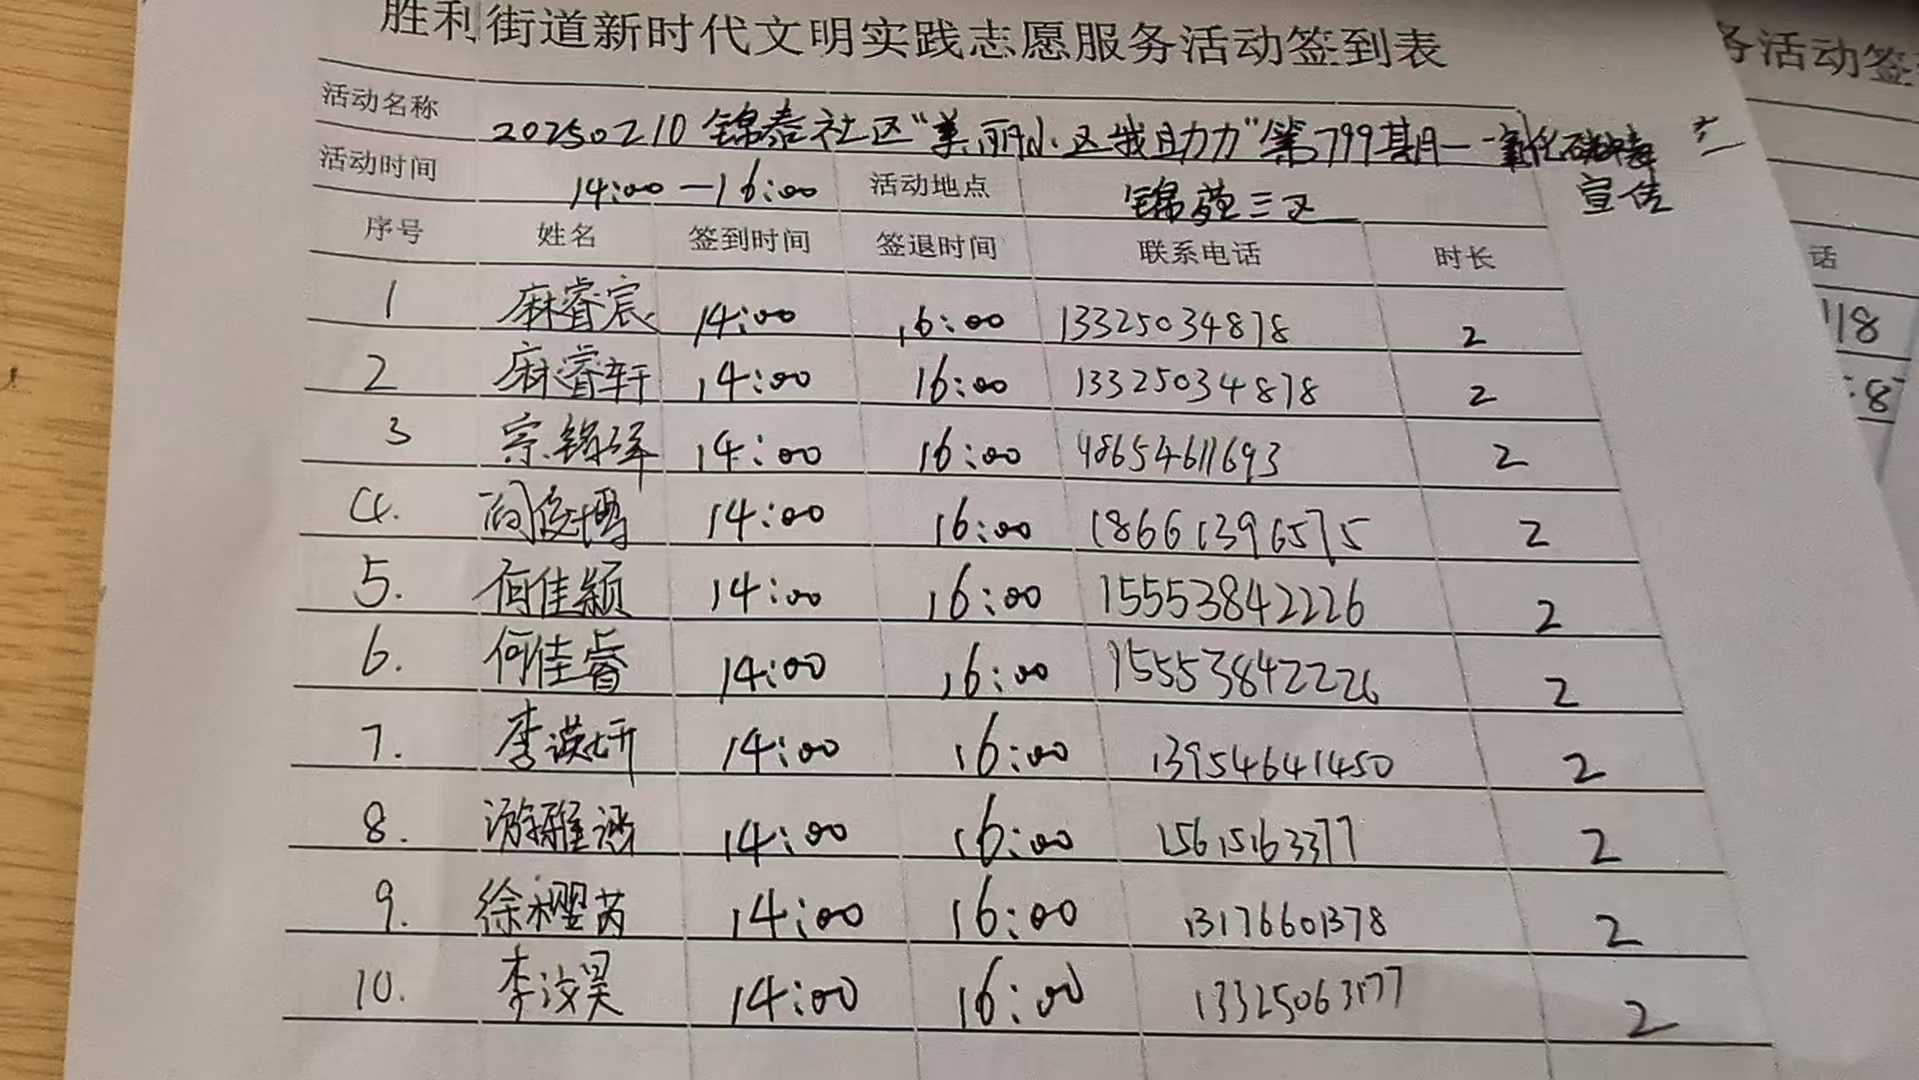 胜利街道新时代文明实践志愿服务活动签到表
活动名称 20250210 锦泰社区“美丽小区我助力”第799期一一氧化碳中毒
宣传
活动时间 14:00—16:00 活动地点 锦苑三区
序号 姓名 签到时间 签退时间 联系电话 时长
1 麻睿宸 14:00 16:00 13325034878 2
2 麻睿轩 14:00 16:00 13325034878 2
3 宗锦泽 14:00 16:00 18654611693 2
4. 14:00 16:00 18661396575 2
5. 何佳颖 14:00 16:00 15553842226 2
6. 何佳睿 14:00 16:00 15553842226 2
7. 李漠妍 14:00 16:00 13954641450 2
8. 游雅涵 14:00 16:00 15615163377 2
9. 徐樱芮 14:00 16:00 13176601378 2
10. 李汶昊 14:00 16:00 13325063177 2
务活动签
话
118